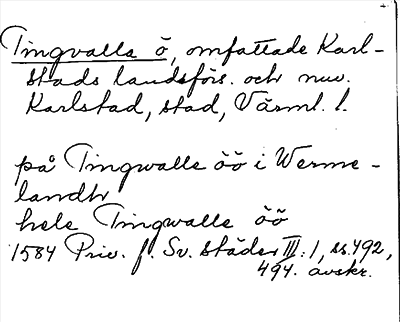 Tingvalla ö, omfattade Karl-
stads landsförs. och nuv.
Karlstad, stad, Värml. l.
på Tingwalle öö i Werme-
landh
hele Tingwalle öö
1584 Priv. f. Sv. städer III:1, ss. 492,
494. avskr.